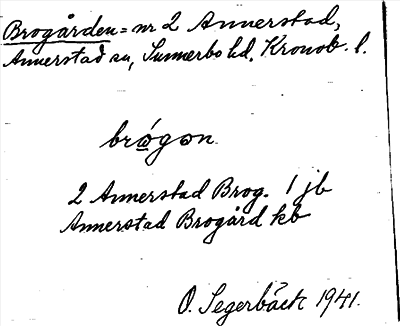 Brogården = nr 2 Annerstad,
Annerstad sn, Sunnerbo hd, Kronob. l.
brǫ́gǫn
2 Annerstad Brog. 1 jb
Annerstad Brogård kb
O. Segerbäck 1941.